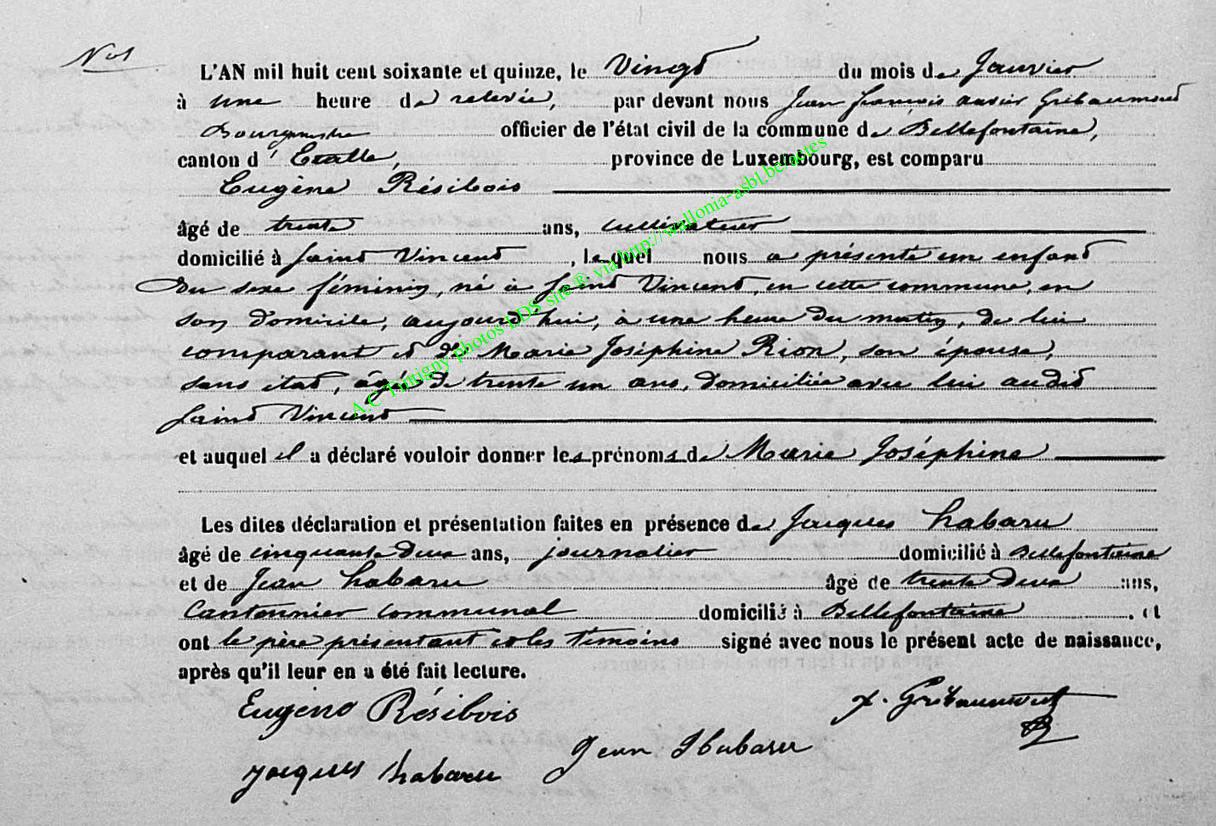 N° 1
L'AN mil huit cent soixante et quinze, le Vingt du mois de Janvier
à une heure de relevée, par devant nous Jean François Xavier Gribaumont
Bourgmestre officier de l'état civil de la commune de Bellefontaine,
canton d'Etalle, province de Luxembourg, est comparu
Eugène Résibois
âgé de trente ans, cultivateur
domicilié à Saint Vincent, lequel nous a présenté un enfant
du sexe féminin, né à Saint Vincent, en cette commune, en
son domicile, aujourd'hui, à une heure du matin, de lui
comparant et de Marie Joséphine Rion, son épouse,
sans état, âgée de trente un ans, domiciliée avec lui audit
Saint Vincent
et auquel il a déclaré vouloir donner les prénoms de Marie Joséphine
Les dites déclaration et présentation faites en présence de Jacques Habaru
âgé de cinquante deux ans, journalier domicilié à Bellefontaine
et de Jean Habaru âgé de trente deux ans,
Cantonnier communal domicilié à Bellefontaine, et
ont le père présentant et les témoins signé avec nous le présent acte de naissance,
après qu'il leur en a été fait lecture.
Eugène Résibois
X. Gribaumont
Jacques Habaru
Jean Habaru
photos DDS site ® via http://stellonia-asbl.be